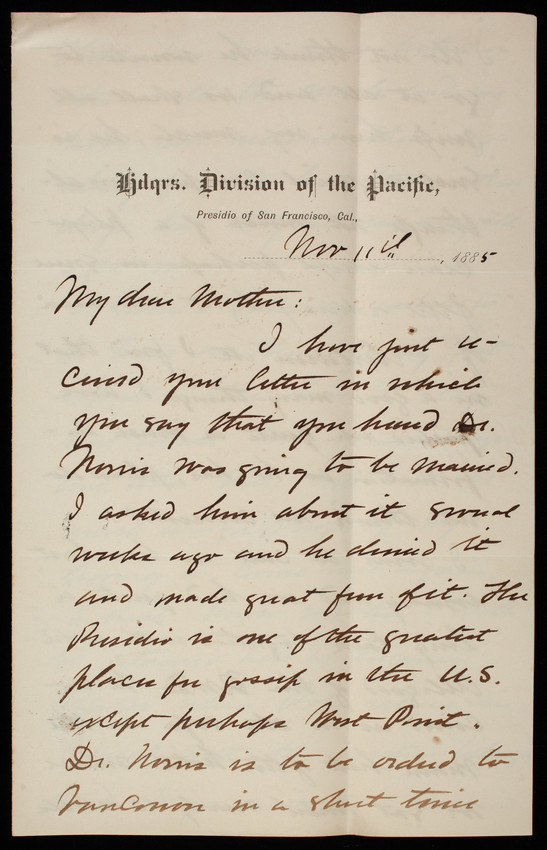 Hdqrs. Division of the Pacific,
Presidio of San Francisco, Cal.,
Nov 11th, 1885
My dear Mother:
I have just re-
ceived your letter in which
you say that you heard Dr.
Norris was going to be married.
I asked him about it several
weeks ago and he denied it
and made great fun of it. The
Presidio is one of the greatest
places for gossip in the U.S.
except perhaps West Point.
Dr. Norris is to be ordered to
Vancouver in a short time